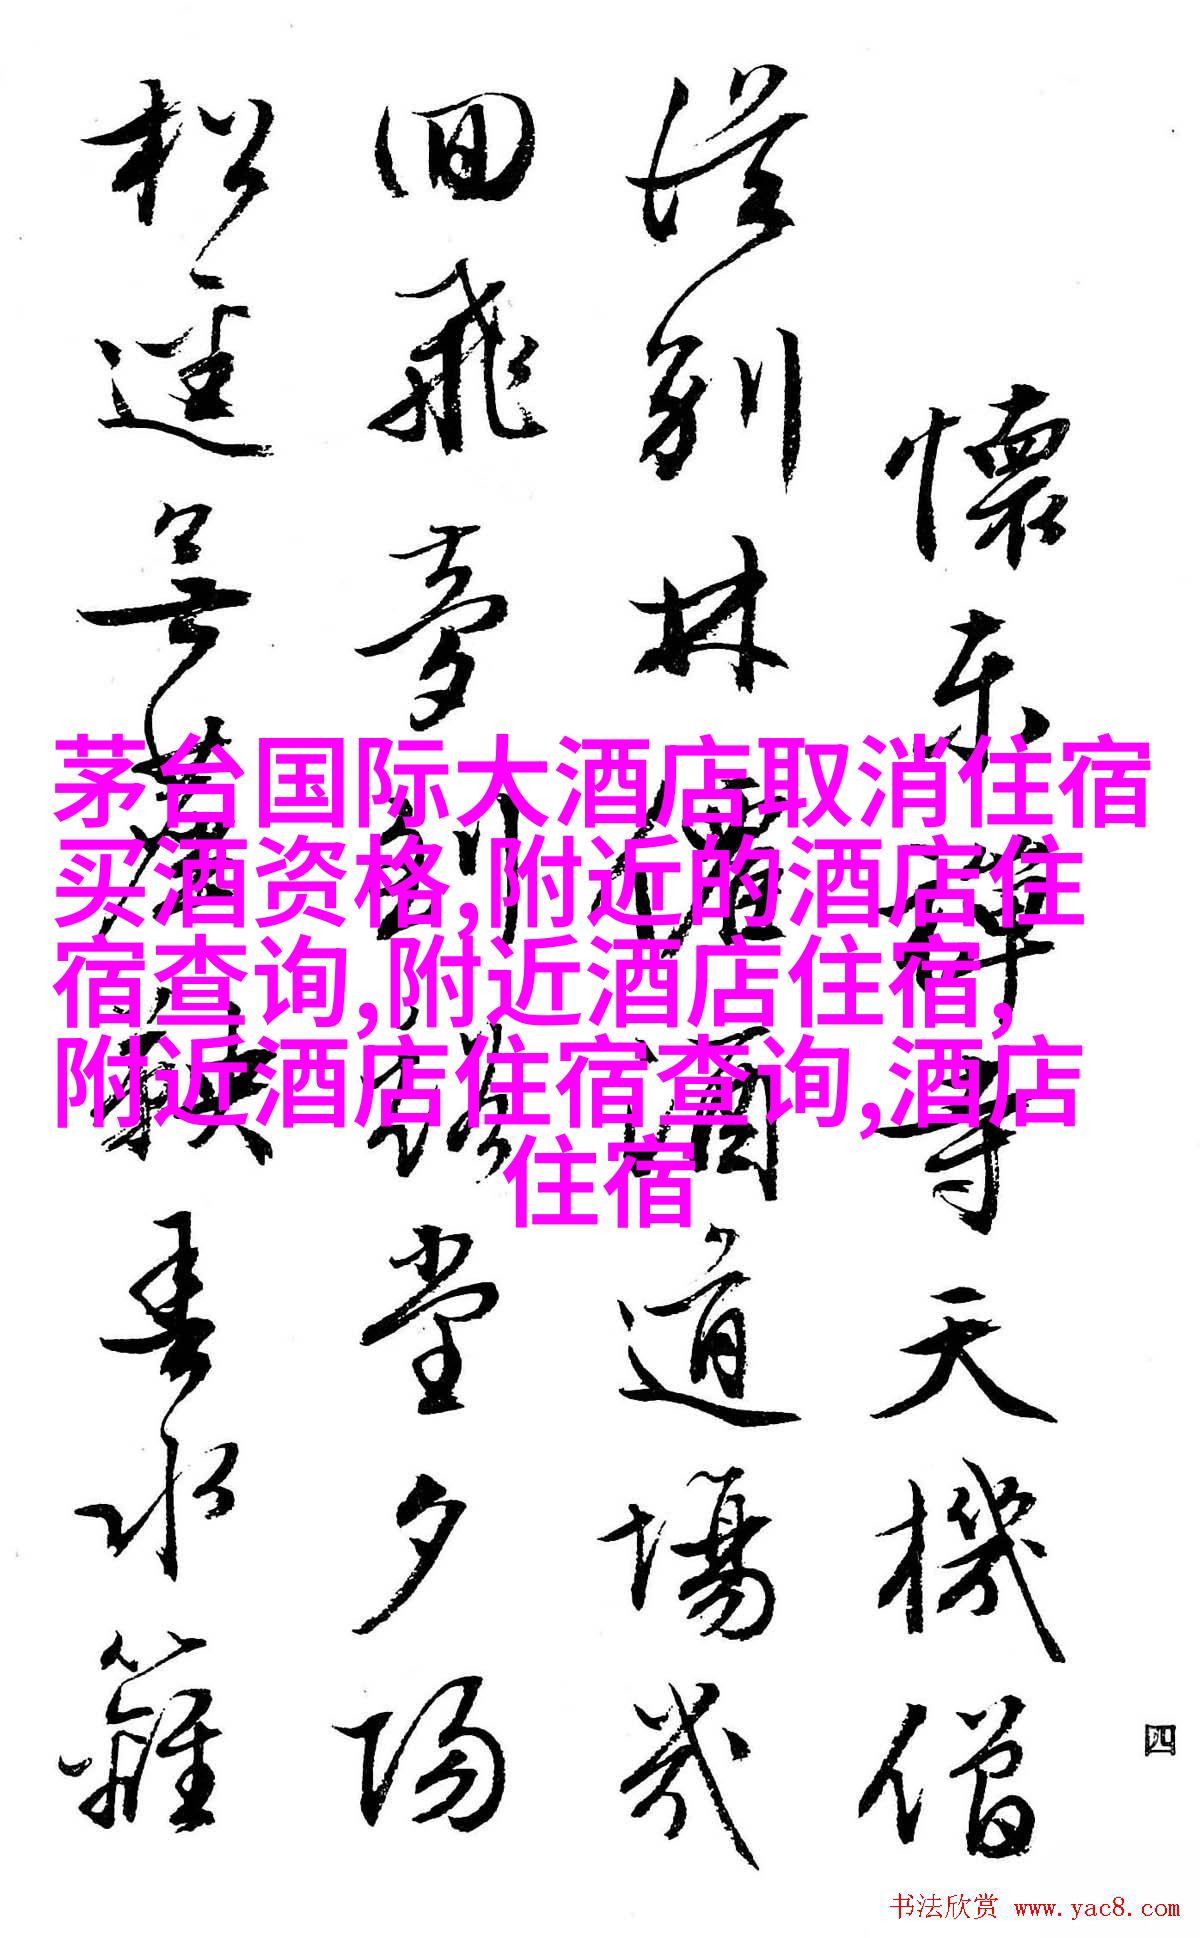 懷東禪寺天機僧
別林僊酒道場幾
回飛夢到堂夕陽
松逕春水籬
四
茅台国际大酒店取消住宿
买酒资格,附近的酒店住
宿查询,附近酒店住宿,
附近酒店住宿查询,酒店
住宿
书法欣赏 www.yac8.com